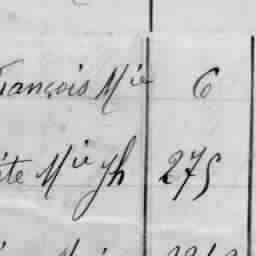 rançois Mie 6
ite Mie Jh 275